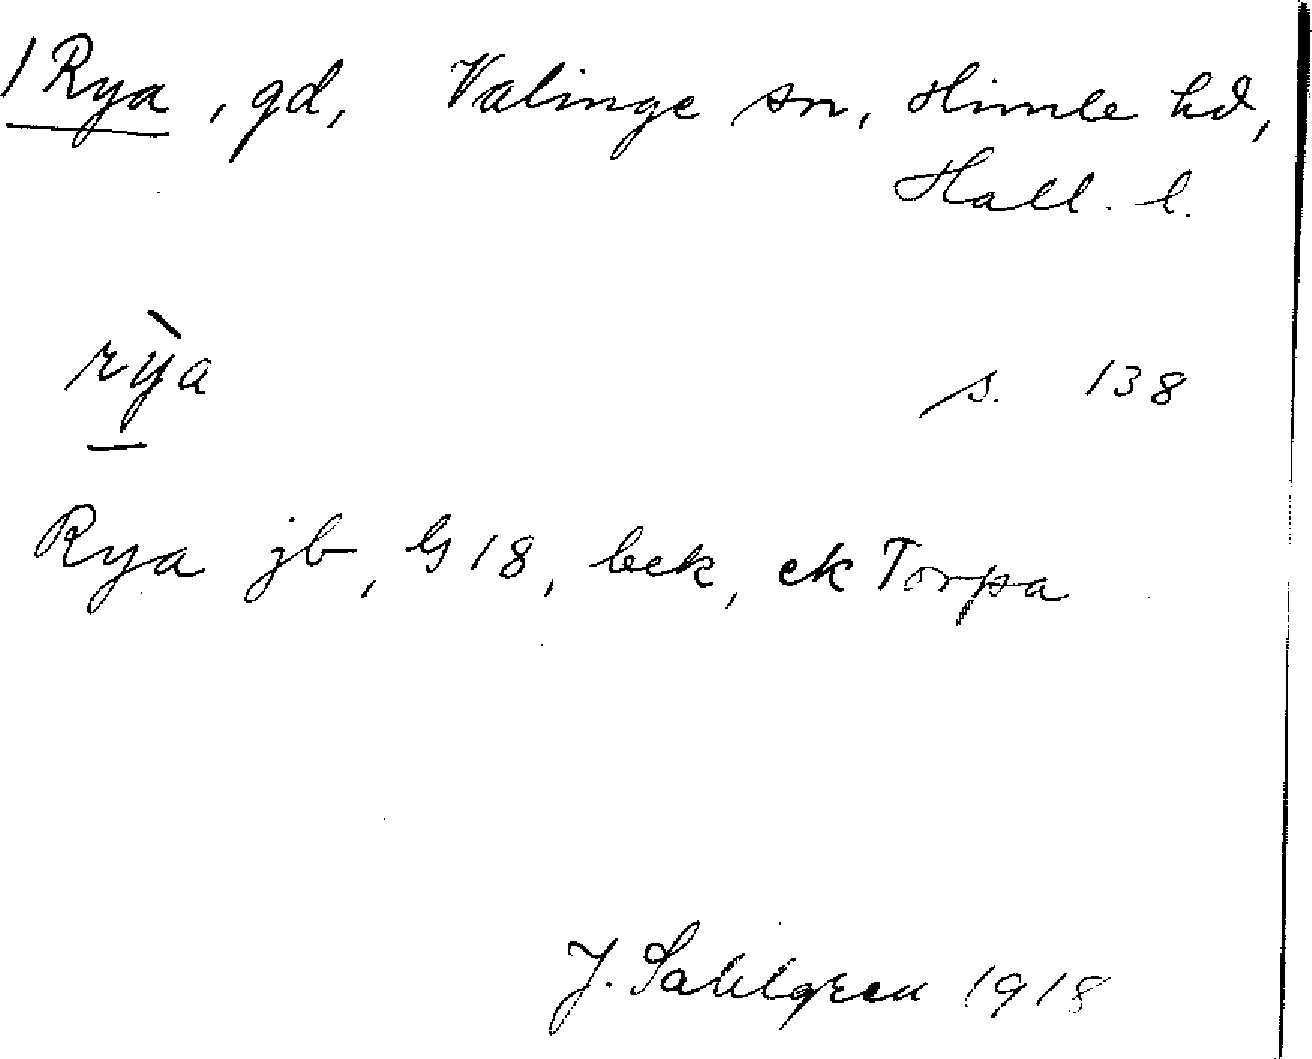 1 Rya, gd, Valinge sn, Himle hd,
Hall. l.
rỳa s. 138
Rya jb, G 18, bek, ek Torpa
J. Sahlgren 1918